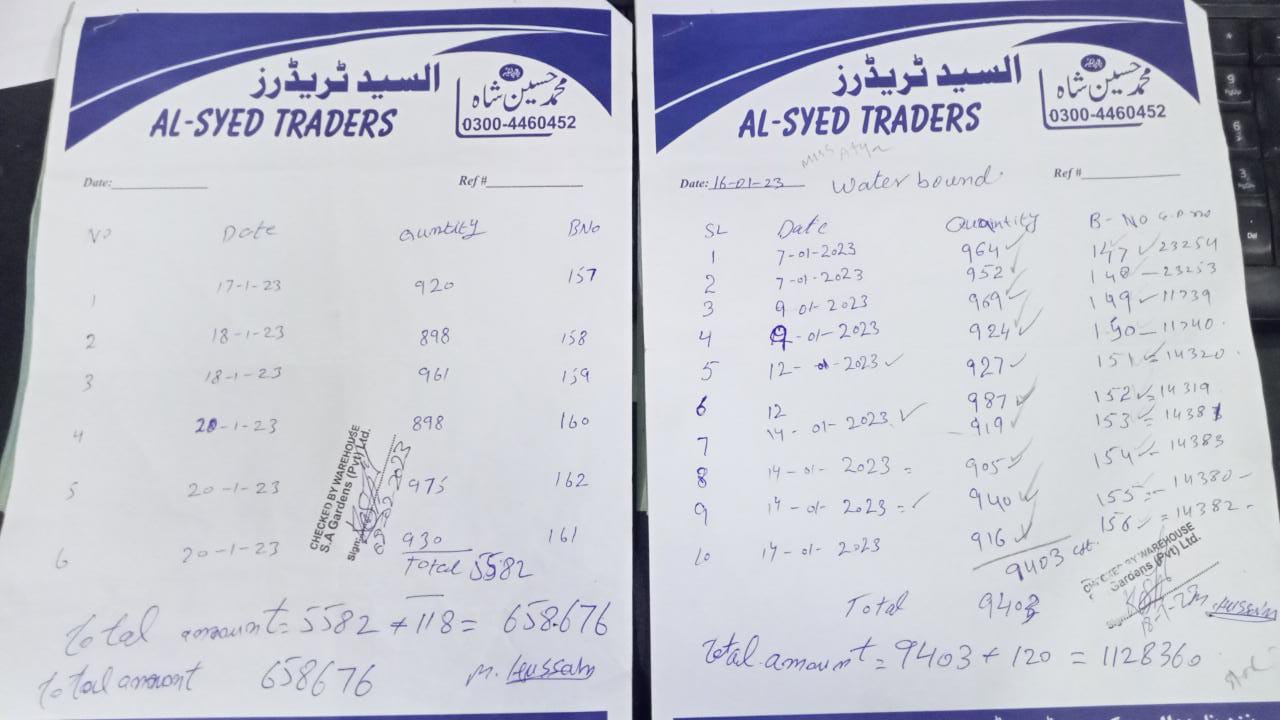 السید ٹریڈرز
محمد حسین شاہ
AL-SYED TRADERS
0300-4460452
Date:
Ref #
NO Date Quntity BNo
1 17-1-23 920 157
2 18-1-23 898 158
3 18-1-23 961 159
4 20-1-23 898 160
5 20-1-23 975 162
6 20-1-23 930 161
Total 5582
CHECKED BY WAREHOUSE
S.A Gardens (Pvt) Ltd.
Sign
02-02-2023
Total amount = 5582 + 118 = 658.676
Total amount 658676 M. Hussain
السید ٹریڈرز
محمد حسین شاہ
AL-SYED TRADERS
0300-4460452
Date: 16-01-23 Water bound
Ref #
SL Date Quantity B-No G.P.no
1 7-01-2023 964 147 23254
2 7-01-2023 952 148 - 23253
3 9 01-2023 969 149 11739
4 9-01-2023 924 150 - 11740
5 12-01-2023 927 151 = 14320
6 12 987 152 = 14319
7 14-01-2023 919 153 = 14381
8 14-01-2023 905 154 = 14383
9 14-01-2023 = 940 155 - 14380
10 14-01-2023 916 156 = 14382
9403 cft.
CHECKED BY WAREHOUSE
Gardens (Pvt) Ltd.
Sign
Total 9403
M. Hussain
Total amount = 9403 + 120 = 1128360